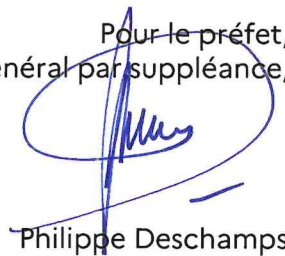 Pour le préfet,
énéral par suppléance,
Philippe Deschamps